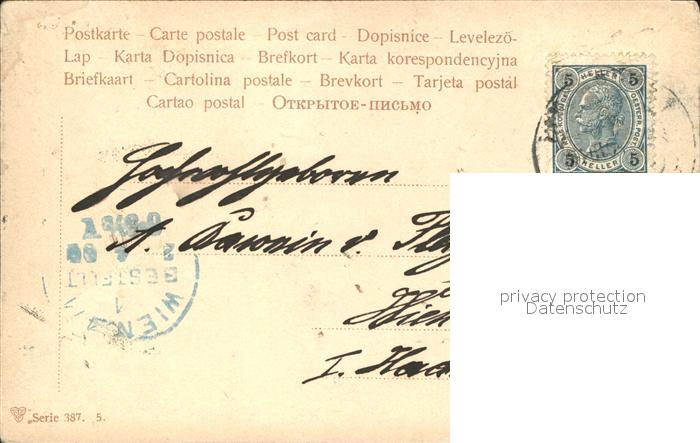 Postkarte – Carte postale – Post card – Dopisnice – Levelezö-
Lap – Karta Dopisnica – Brefkort – Karta korespondencyjna
Briefkaart – Cartolina postale – Brevkort – Tarjeta postal
Cartao postal – Открытое-письмо
5 HELLER 5
5 HELLER 5
Hochwohlgeboren
v.
Wien
I.
BESTELLT
WIEN
1
privacy protection
Datenschutz
Serie 387. 5.